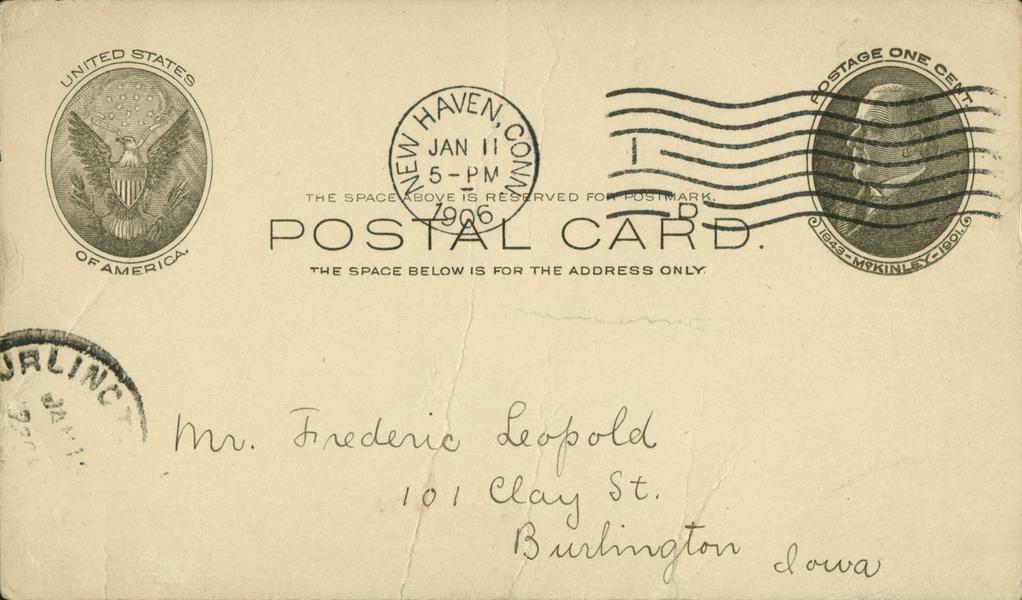 UNITED STATES
OF AMERICA.
POSTAGE ONE CENT.
1843-McKINLEY-1901.
NEW HAVEN, CONN.
JAN 11
5-PM
1906
1
D
THE SPACE ABOVE IS RESERVED FOR POSTMARK.
POSTAL CARD.
THE SPACE BELOW IS FOR THE ADDRESS ONLY.
URLINGT
JAN
Mr. Frederic Leopold
101 Clay St.
Burlington Iowa